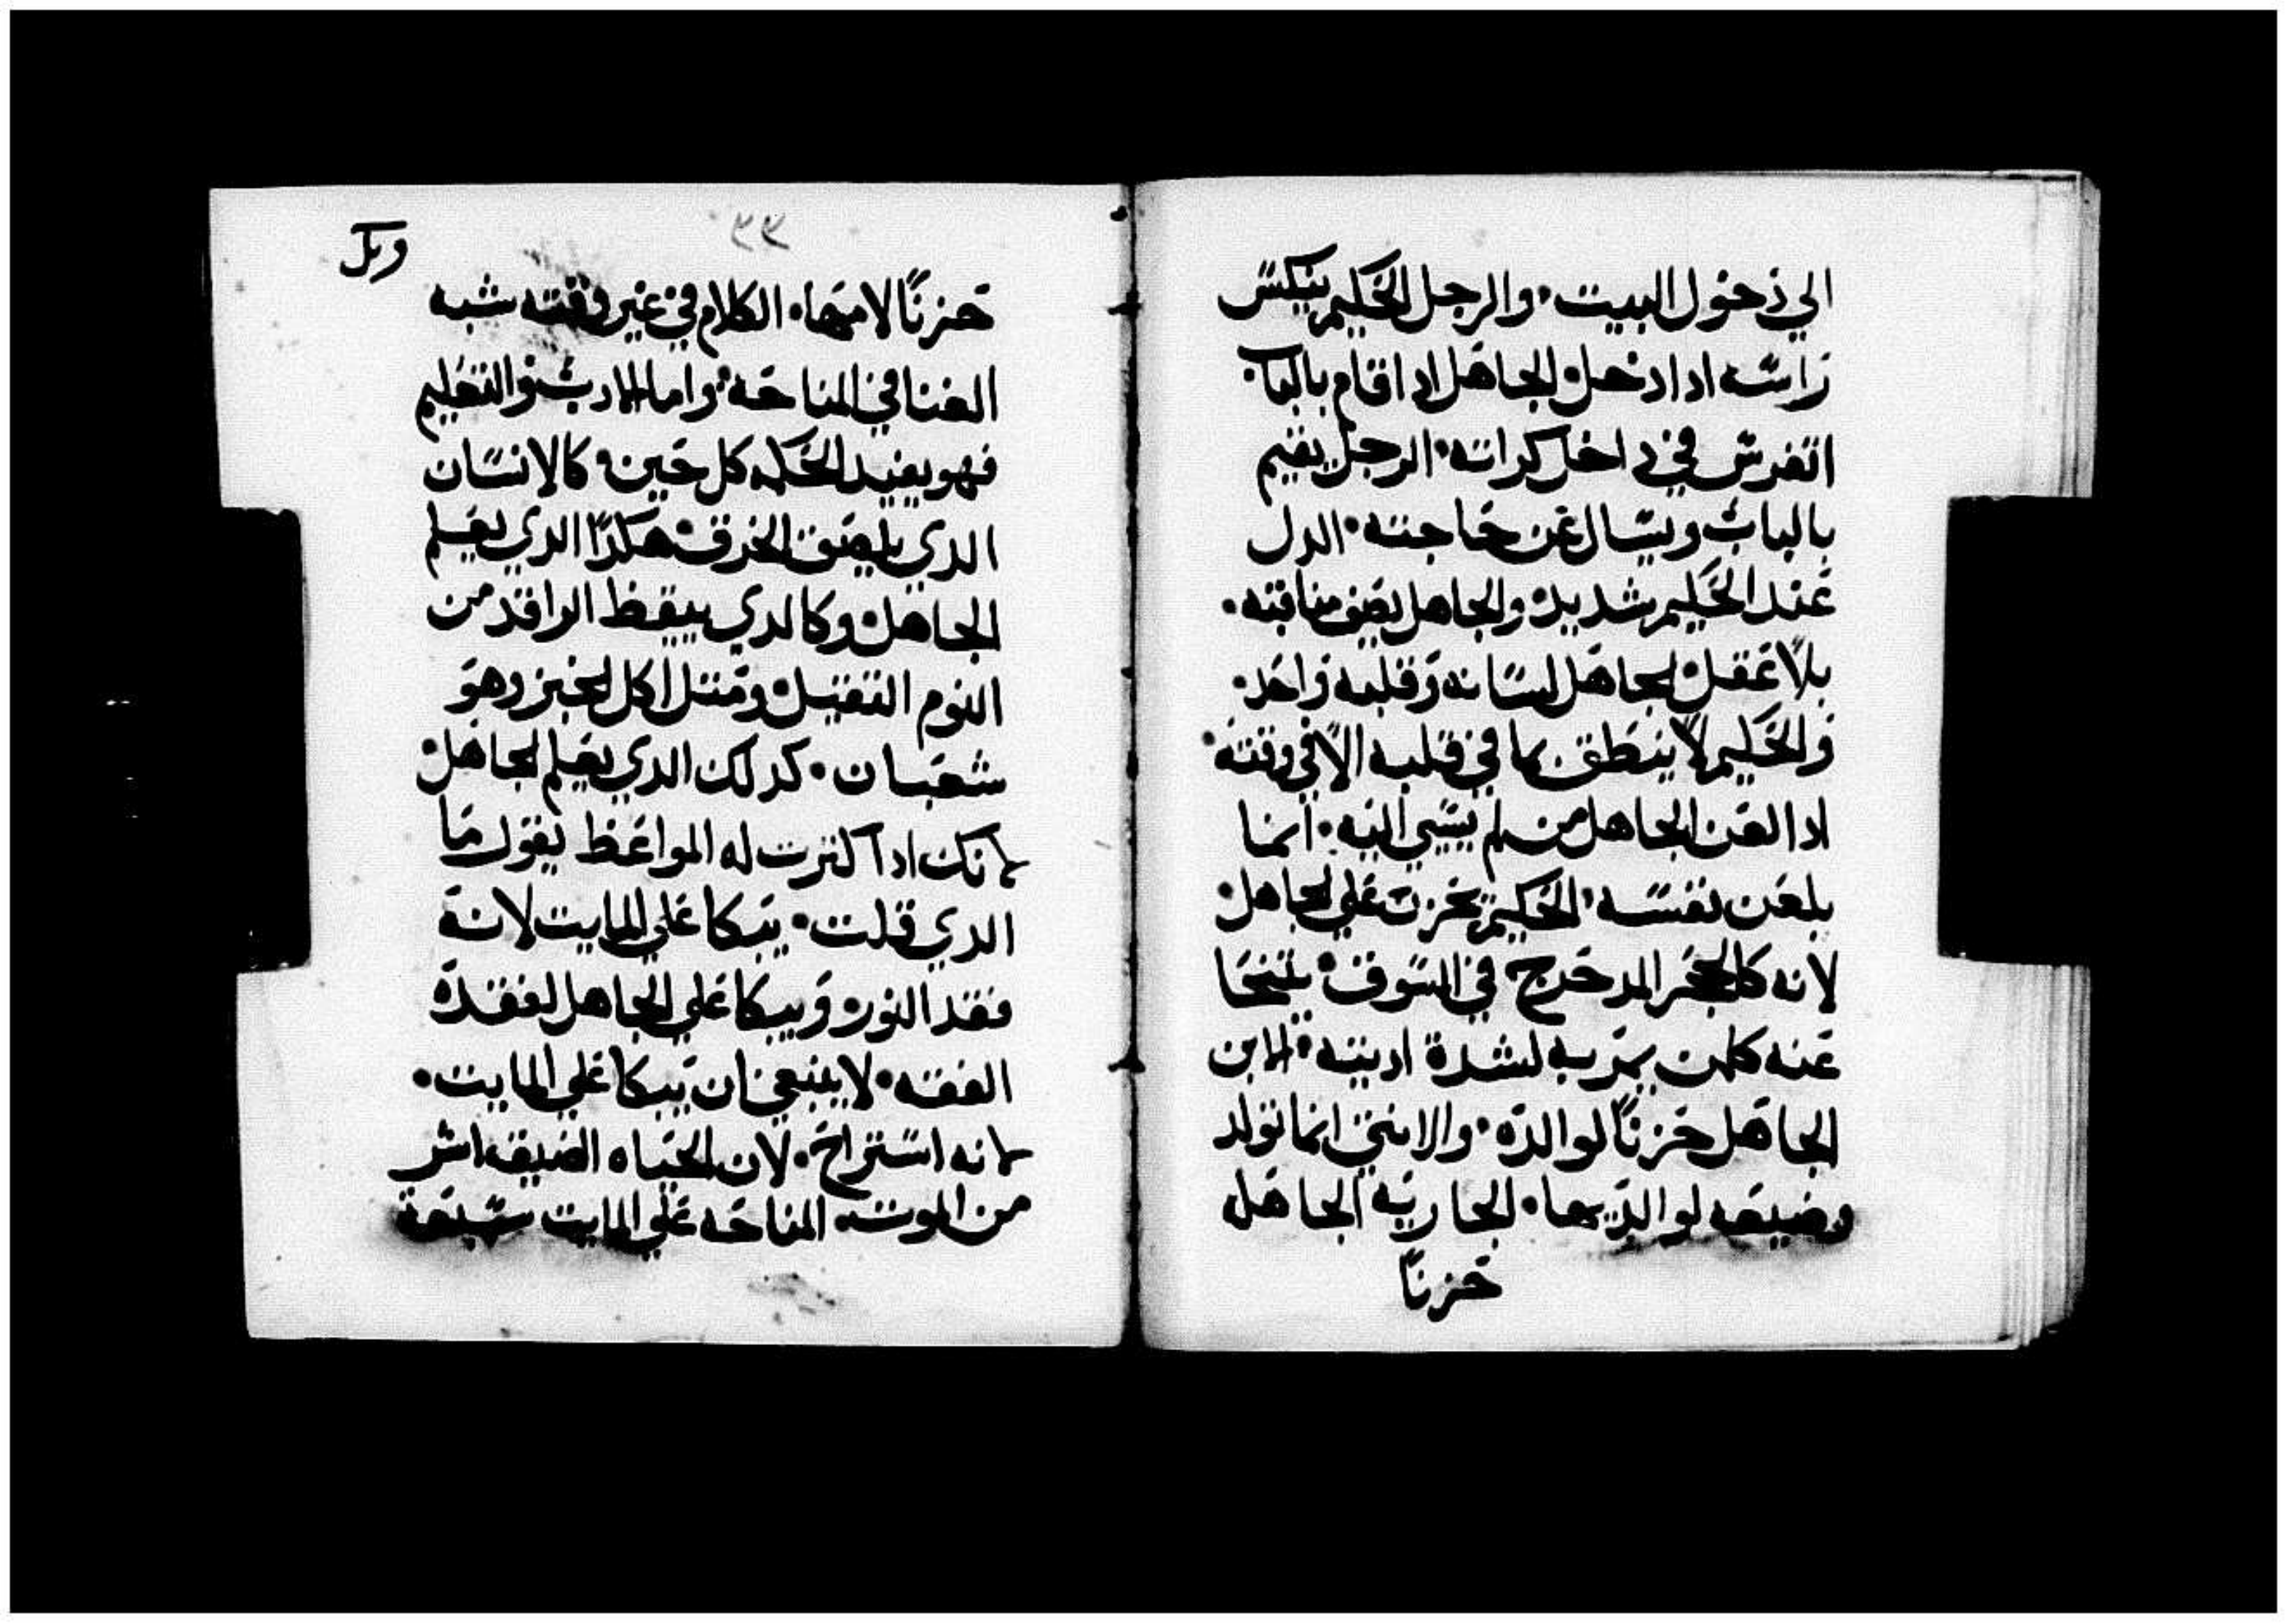 الي دخول البيت والرجل الحكيم ينكس
راسه ادا دخل الجاهل ادا قام بالباب
اتفرس في داخل كراته الرجل يقيم
بالباب ويسال عن حاجته الدل
عند الحكيم شديد والجاهل يصف مناقبه
بلا عقل الجاهل لسانه وقلبه واحد
والحكيم لا ينطق بما في قلبه الا في وقته
ادا لعن الجاهل من لم يسي اليه انما
يلعن نفسه الحكيم يحزن علي الجاهل
لانه كالحجر المدحرج في السوق يتنحا
عنه كلمن يمر به لشدة اديته الابن
الجاهل حزنًا لوالده والابنه انما تولد
وضيعه لوالديها الجاريه الجاهله
حزنًا
٣٣
وبل
حزنًا لامها الكلام في غير وقته شبه
الغنا في المناحه واما الادب والتعليم
فهو يفيد الحكمه كل حين كالانسان
الدي يلصق الخزف هكدا الدي يعلم
الجاهل وكالدي ييقظ الراقد من
النوم الثقيل ومثل اكل الخبز وهو
شعبان كدلك الدي يعلم الجاهل
لانك ادا كثرت له المواعظ يقول ما
الدي قلت يبكا علي المايت لانه
فقد النور ويبكا علي الجاهل لفقده
الفقه لا ينبغي ان يبكا علي المايت
لانه استراح لان الحياه الضيقه اشر
من الموت المناحه علي المايت سبعة